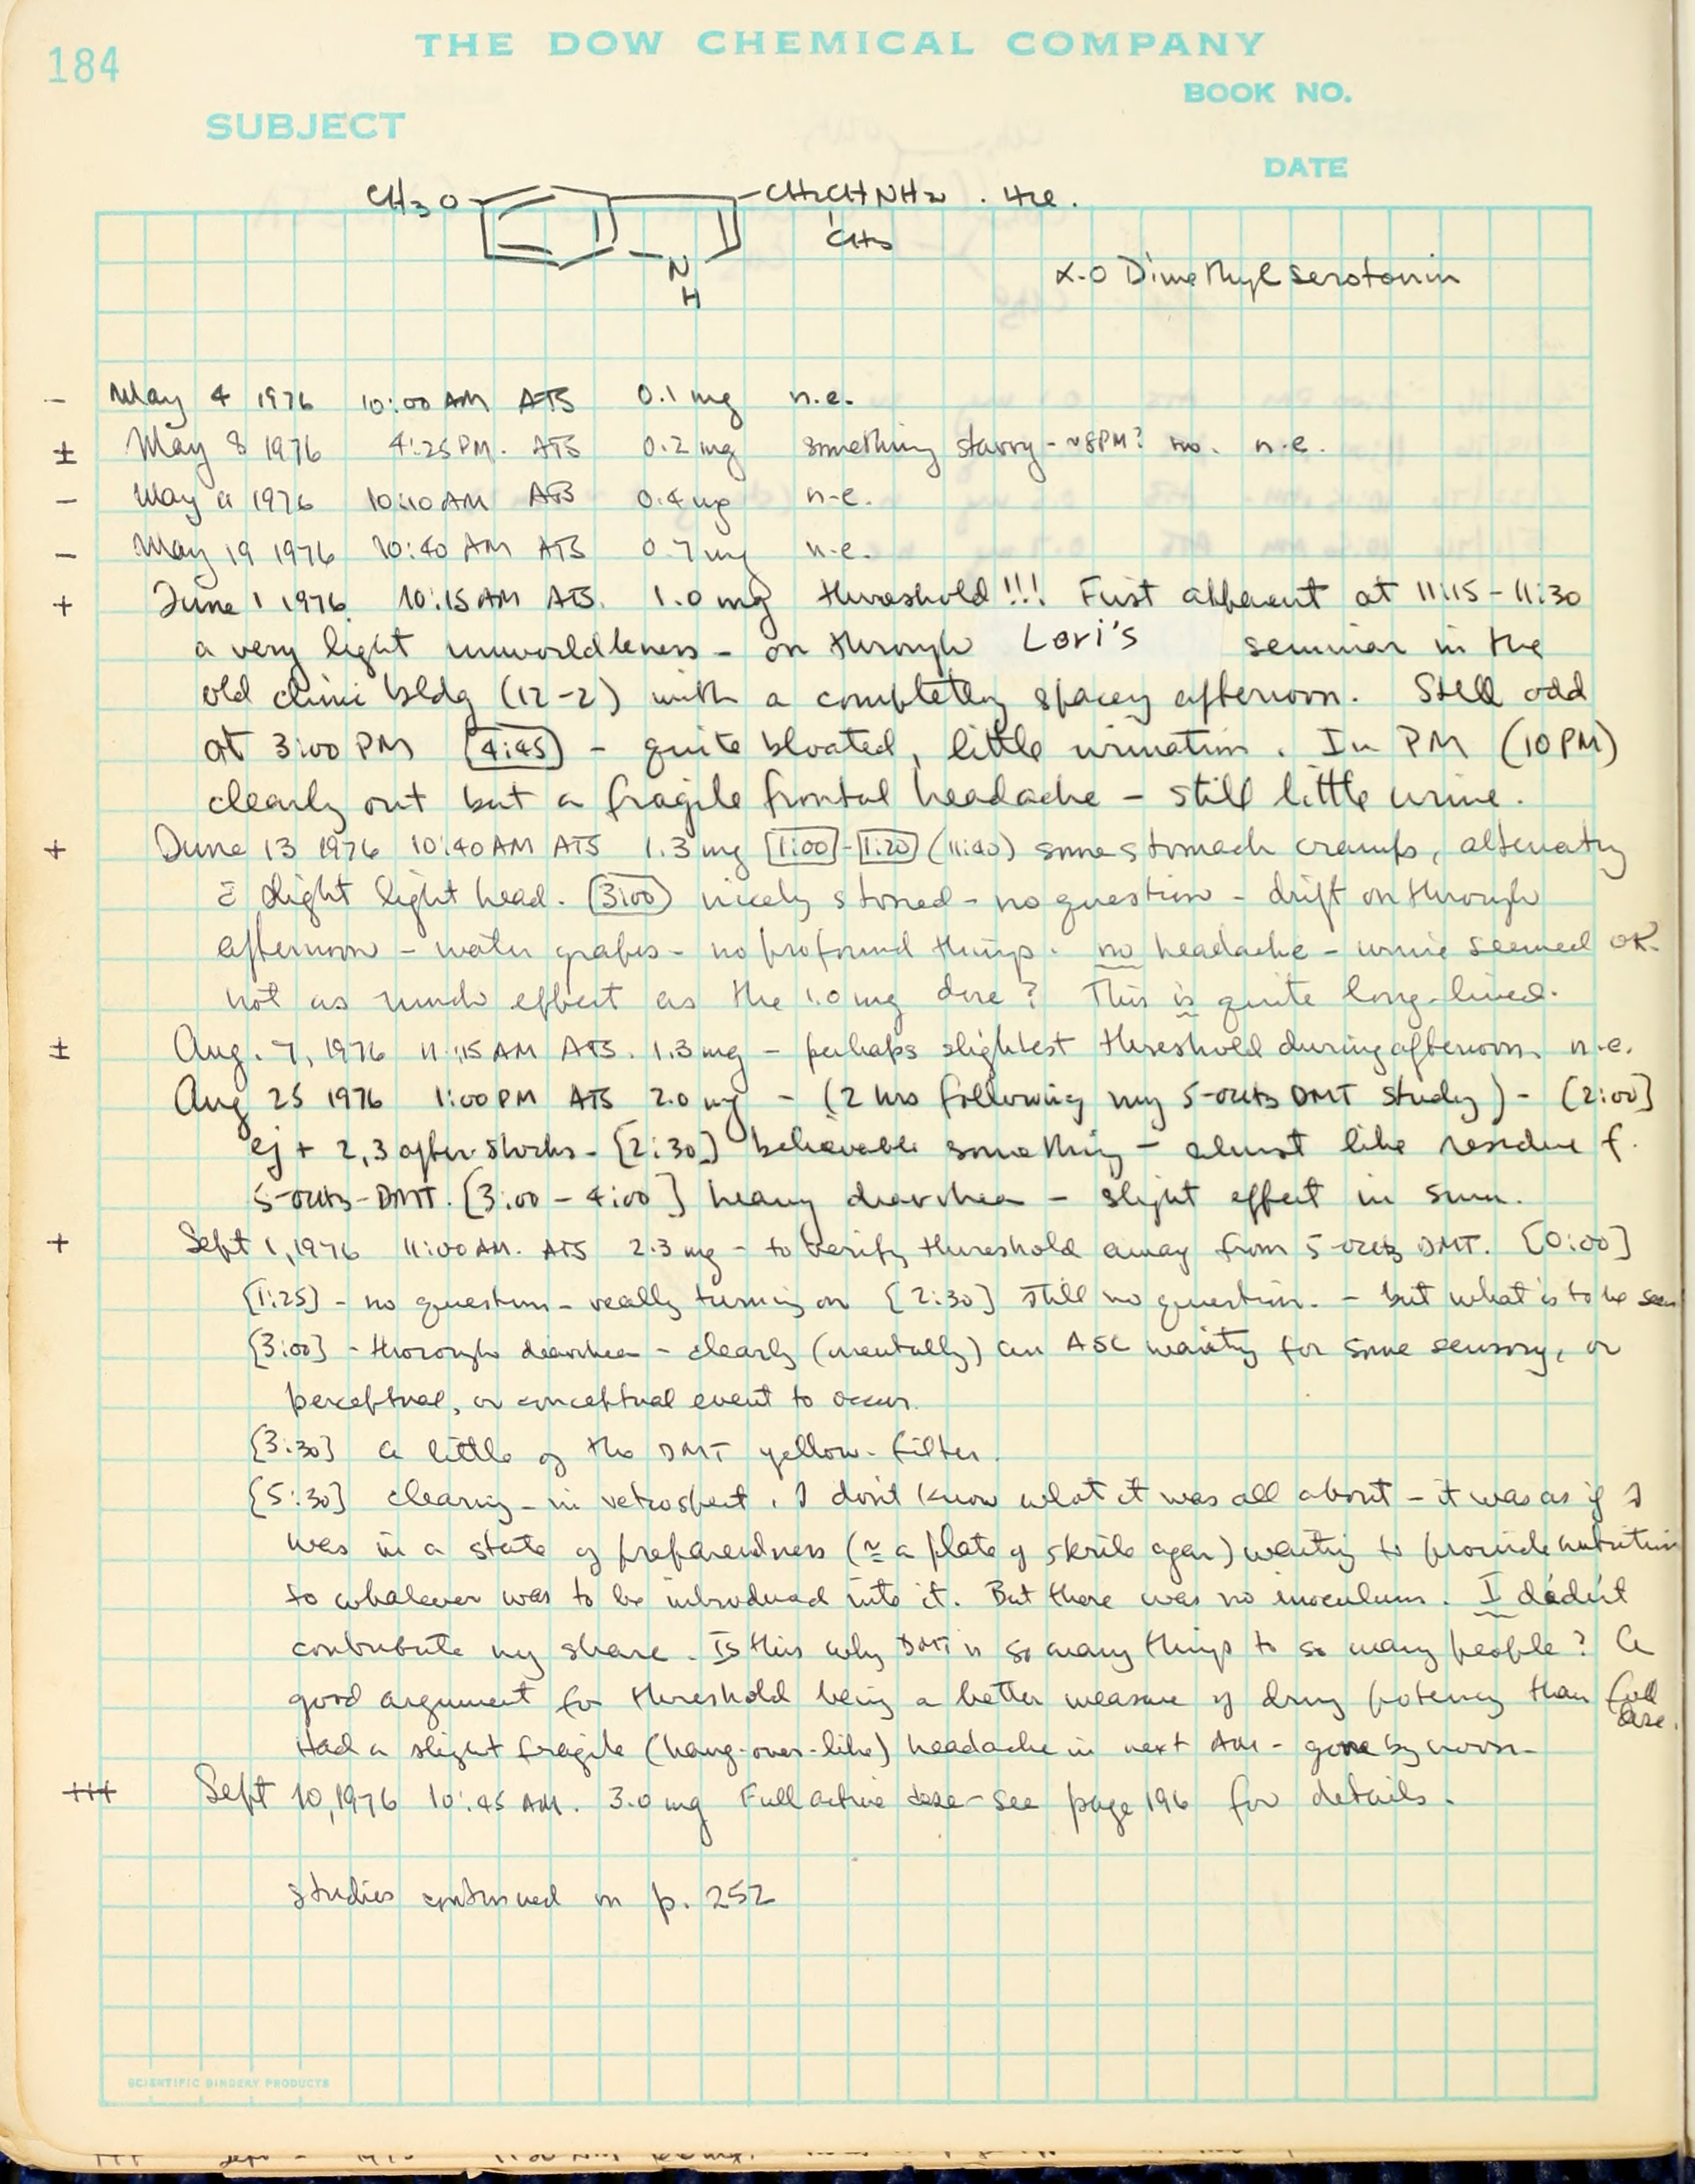 184
THE DOW CHEMICAL COMPANY
BOOK NO.
SUBJECT
DATE
CH3O CH2CHNH2 . HCl.
CH3
N
H
α.O Dimethylserotonin
- May 4 1976 10:00 AM ATS 0.1 mg n.e.
± May 8 1976 4:25 PM. ATS 0.2 mg something starry - ~8PM? no. n.e.
- May 11 1976 10:10 AM ATS 0.4 mg n-e.
- May 19 1976 10:40 AM ATS 0.7 mg n.e.
+ June 1 1976 10:15 AM ATS. 1.0 mg threshold!!! First apparent at 11:15 - 11:30
a very light unworldleness - on through Lori's seminar in the
old clinic bldg (12-2) with a completely spacey afternoon. Still odd
at 3:00 PM [4:45] - quite bloated, little urination. In PM (10PM)
clearly out but a fragile frontal headache - still little urine.
+ June 13 1976 10:40 AM ATS 1.3 mg [1:00]-[1:20] (11:40) some stomach cramps, alternatng
c̄ slight light head. [3:00] nicely stoned - no question - drift on through
afternoon - water grapes - no profound things. no headache - urine seemed OK.
not as much effect as the 1.0 mg dose? This is quite long-lived.
± Aug. 7, 1976 11:15 AM ATS. 1.3 mg - perhaps slightest threshold during afternoon. n.e.
Aug 25 1976 1:00 PM ATS 2.0 mg - (2 hrs following my 5-OCH3 DMT study) - [2:00]
ej + 2,3 after-shocks - [2:30] believable something - almost like residue f.
5-OCH3-DMT. [3:00 - 4:00] heavy diarrhea - slight effect in sum.
+ Sept 1, 1976 11:00 AM. ATS 2.3 mg - to verify threshold away from 5-OCH3 DMT. [0:00]
[1:25] - no question - really turning on [2:30] still no question. - but what is to be seen
[3:00] - thorough diarrhea - clearly (mentally) an ASC waiting for some sensory, or
perceptual, or conceptual event to occur.
[3:30] a little of the DMT yellow-filter.
[5:30] clearing - in retrospect, I don't know what it was all about - it was as if I
was in a state of preparedness (≈ a plate of sterile agar) waiting to provide nutrition
to whatever was to be introduced into it. But there was no inoculum. I didn't
contribute my share. Is this why DMT is so many things to so many people? A
good argument for threshold being a better measure of drug potency than full
dose.
Had a slight fragile (hang-over-like) headache in next AM - gone by noon -
+++ Sept 10, 1976 10:45 AM. 3.0 mg Full active dose - see page 196 for details.
studies continued on p. 252
SCIENTIFIC BINDERY PRODUCTS